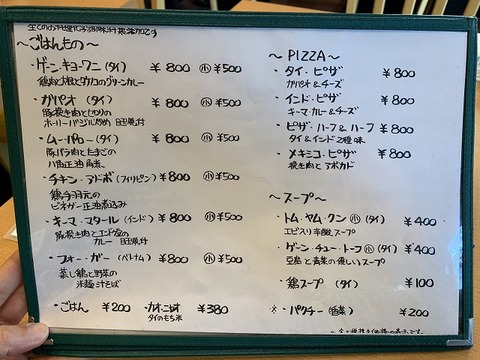 全てのお料理化学調味料無添加です
～ごはんもの～
・ゲーン・キョーワーン(タイ) ￥800 小￥500
鶏肉と大根とタケノコのグリーンカレー
・ガパオ (タイ) ￥800 小￥500
豚挽き肉とたっぷりの
ホーリーバジル炒め 目玉焼付
・ムー・パロー(タイ) ￥800 小￥500
豚バラ肉とたまごの
八角正油煮
・チキン・アドボ(フィリピン) ￥800 小￥500
鶏手羽元の
ビネガー正油煮込み
・キーマ・マタール(インド) ￥800 小￥500
豚挽き肉とエンドウ豆の
カレー 目玉焼付
・フォー・ガー(ベトナム) ￥800 小￥500
蒸し鶏と野菜の
米麺汁そば
・ごはん ￥200 ・カオ・ニャオ ￥380
タイのもち米
～PIZZA～
・タイ・ピザ ￥800
ガパオ&チーズ
・インド・ピザ ￥800
キーマ・カレー&チーズ
・ピザ・ハーフ&ハーフ ￥800
タイ&インド 2種の味
・メキシコ・ピザ ￥800
挽き肉とアボカド
～スープ～
・トム・ヤム・クン小(タイ) ￥400
エビ入り辛酸スープ
・ゲーン・チュー・トーフ小(タイ) ￥400
豆腐と青菜の優しいスープ
・鶏スープ (タイ) ￥100
※パクチー(香菜) ￥200